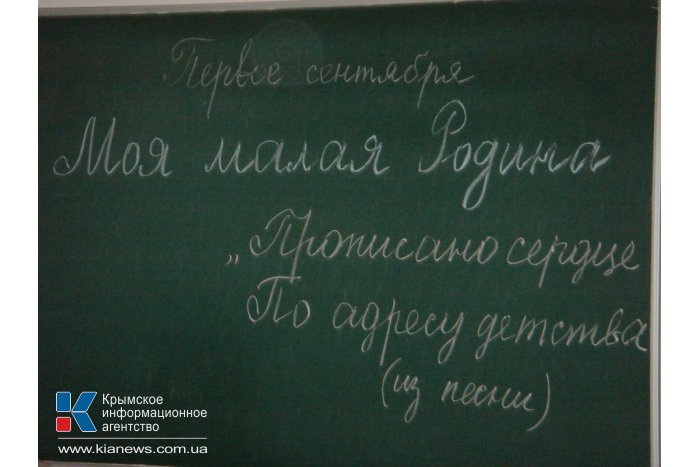 Первое сентября
Моя малая Родина
„Прописано сердце
По адресу детства
(из песни)
Крымское
информационное
агентство
www.kianews.com.ua